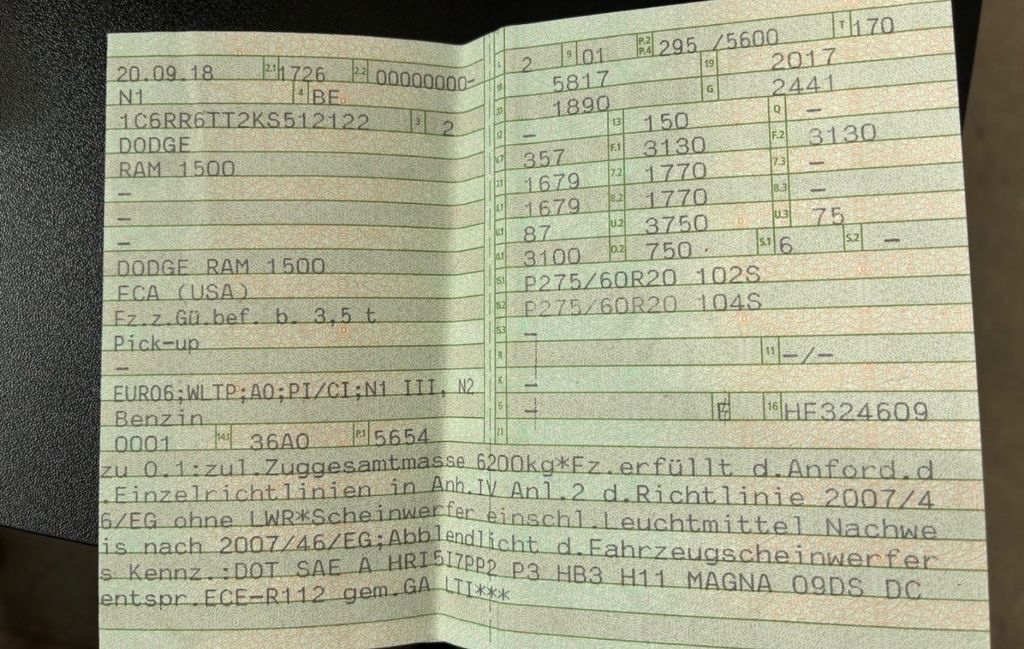 20.09.18 2.1 1726 2.2 00000000-
N1 4 BE
1C6RR6TT2KS512122 3 2
DODGE
RAM 1500
–
–
–
DODGE RAM 1500
FCA (USA)
Fz.z.Gü.bef. b. 3,5 t
Pick-up
–
EURO6;WLTP;AO;PI/CI;N1 III, N2
Benzin
0001 14.1 36AO P.1 5654
L 2 9 01 P.2 P.4 295 /5600 T 170
18 5817 19 2017
20 1890 G 2441
12 – 13 150 Q –
V.7 357 F.1 3130 F.2 3130
7.1 1679 7.2 1770 7.3 –
8.1 1679 8.2 1770 8.3 –
U.1 87 U.2 3750 U.3 75
O.1 3100 O.2 750 S.1 6 S.2 –
15.1 P275/60R20 102S
15.2 P275/60R20 104S
15.3 –
R 11 –/–
K –
6 – 16 HF324609
21
zu O.1:zul.Zuggesamtmasse 6200kg*Fz.erfüllt d.Anford.d
.Einzelrichtlinien in Anh.IV Anl.2 d.Richtlinie 2007/4
6/EG ohne LWR*Scheinwerfer einschl.Leuchtmittel Nachwe
is nach 2007/46/EG;Abblendlicht d.Fahrzeugscheinwerfer
s Kennz.:DOT SAE A HRI5I7PP2 P3 HB3 H11 MAGNA 09DS DC
entspr.ECE-R112 gem.GA LTI***